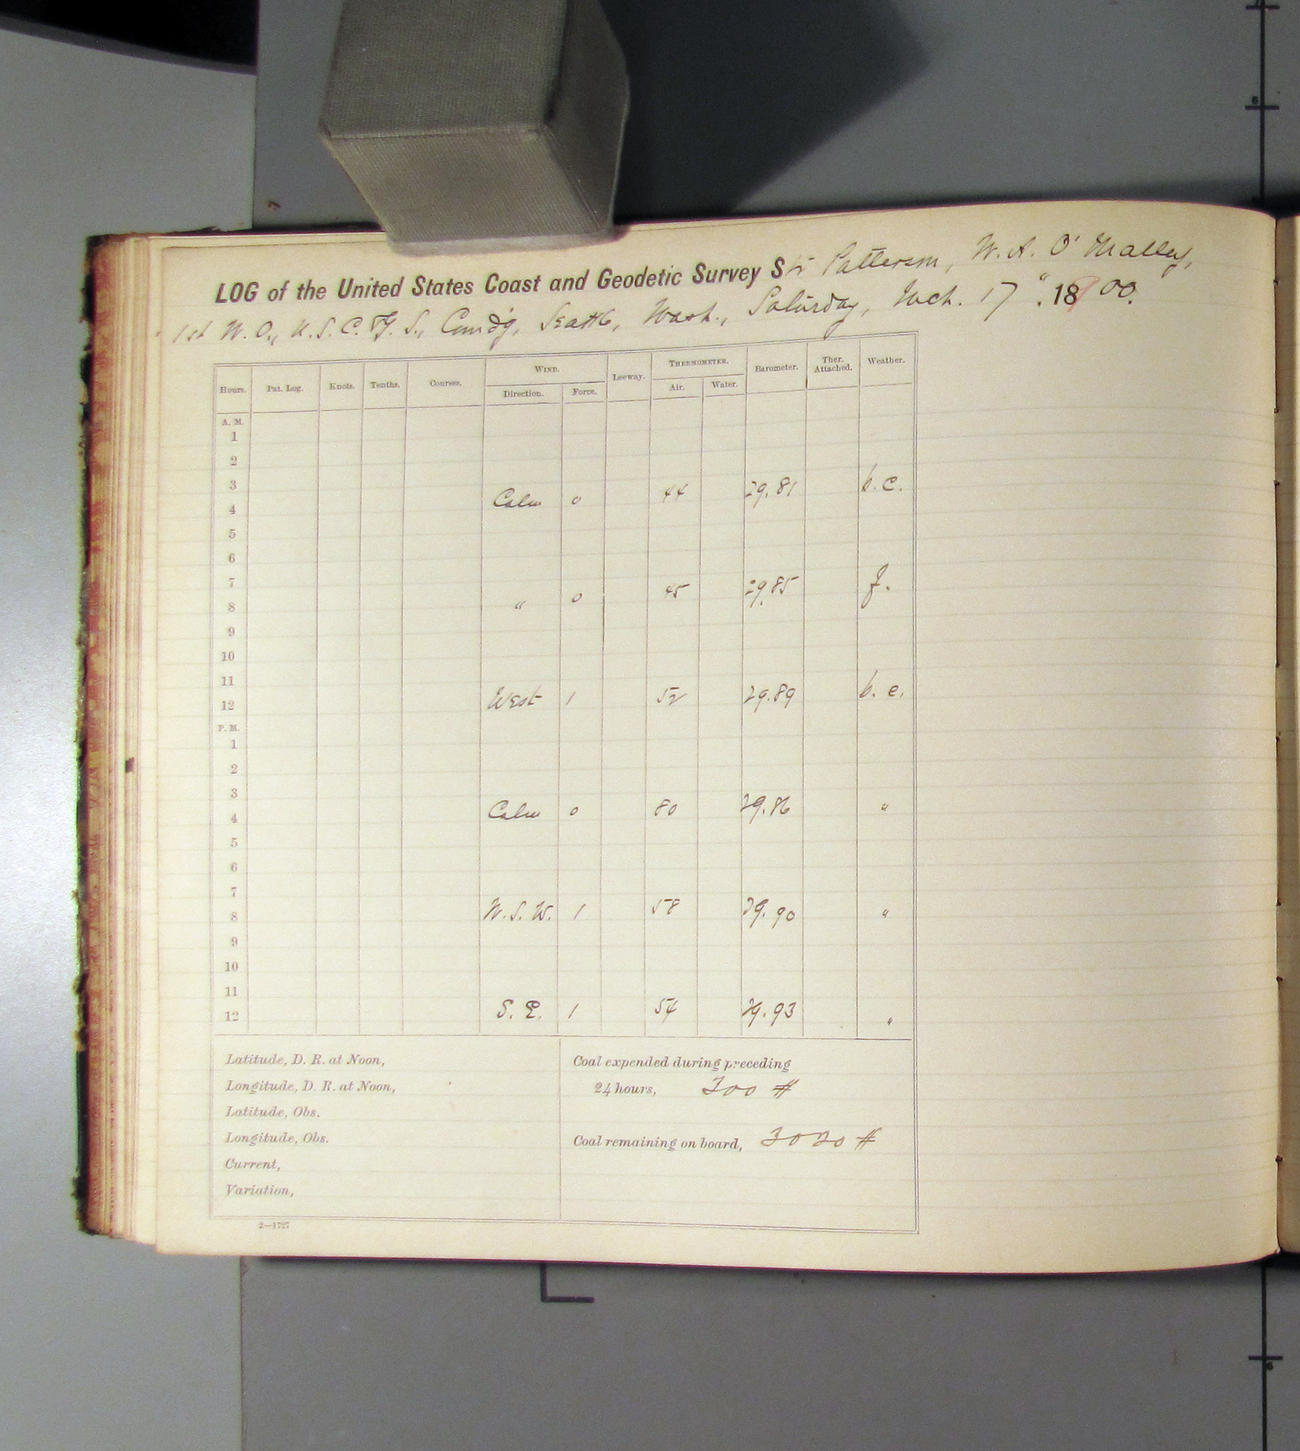 LOG of the United States Coast and Geodetic Survey Str Patterson, W. A. O'Malley,
1st W. O., U. S. C. & G. S., Comd'g, Seattle, Wash., Saturday, Mch. 17", 1800.
Hours. Pat. Log. Knots. Tenths. Courses. WIND. Leeway. THERMOMETER. Barometer. Ther. Attached. Weather.
Direction. Force. Air. Water.
A. M.
1
2
3
4 Calm 0 44 29.81 b.c.
5
6
7
8 " 0 45 29.85 f.
9
10
11
12 West 1 52 29.89 b. c.
P. M.
1
2
3
4 Calm 0 80 29.86 "
5
6
7
8 W.S.W. 1 58 29.90 "
9
10
11
12 S. E. 1 54 29.93 "
Latitude, D. R. at Noon,
Longitude, D. R. at Noon,
Latitude, Obs.
Longitude, Obs.
Current,
Variation,
Coal expended during preceding
24 hours, 300 #
Coal remaining on board, #
2—1727